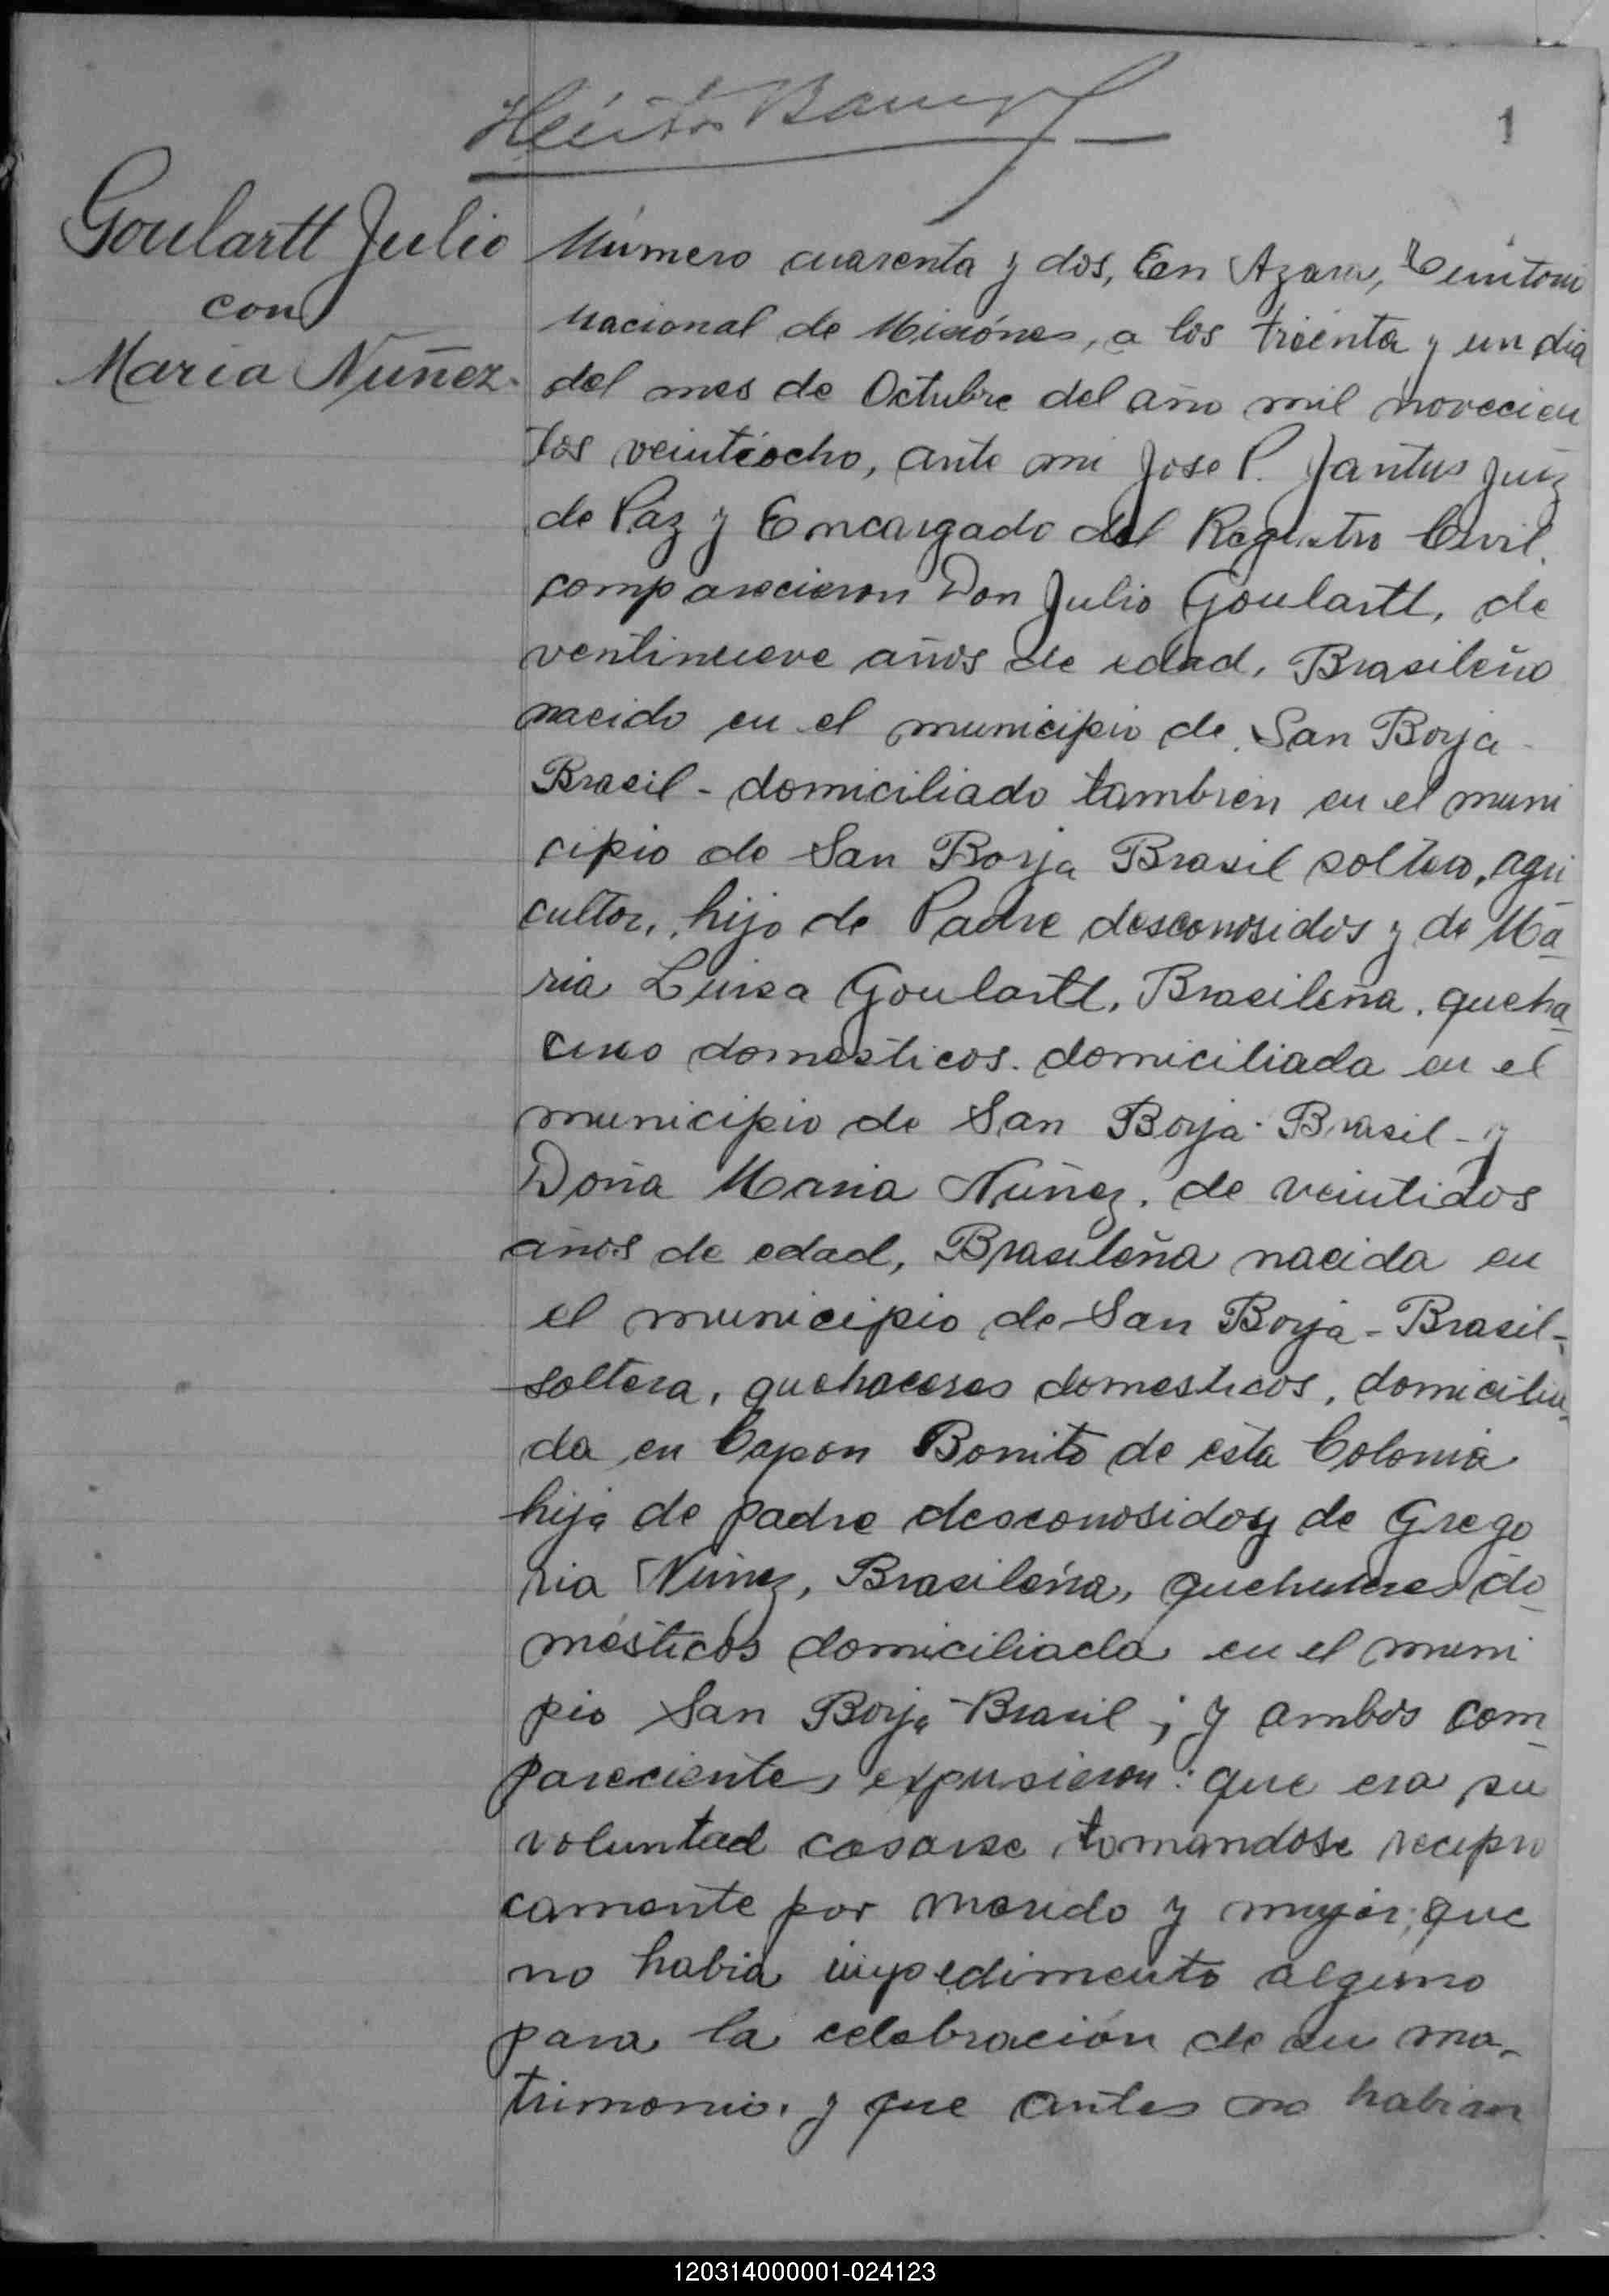 1
Goulartt Julio
con
Maria Nuñez.
Número cuarenta y dos, En Azara, Territorio
Nacional de Misiónes, a los treinta y un dia
del mes de Octubre del año mil novecien
tos veintiocho, ante mi Jose P. Jantus Juez
de Paz y Encargado del Registro Civil.
comparecieron Don Julio Goulartt, de
ventinueve años de edad, Brasileño
nacido en el municipio de San Borja -
Brasil - domiciliado tambien en el muni
cipio de San Borja Brasil soltero, agri
cultor, hijo de Padre desconosidos y de Ma
ria Luisa Goulartt, Brasileña, queha
ceres domesticos. domiciliada en el
municipio de San Borja - Brasil - y
Doña Maria Nuñez, de veintidos
años de edad, Brasileña nacida en
el municipio de San Borja - Brasil -,
soltera, quehaceres domesticos, domicilia
da en Capon Bonito de esta Colonia
hija de padre desconosidos y de Grego
ria Nuñez, Brasileña, quehaceres do
mésticos domiciliada en el muni
pio San Borja - Brasil ; y ambos com
parecientes expusieron: que era su
voluntad casarse tomandose recipro
camente por marido y mujer; que
no habia impedimento alguno
para la celebración de su ma-
trimonio, y que antes no habian
120314000001-024123